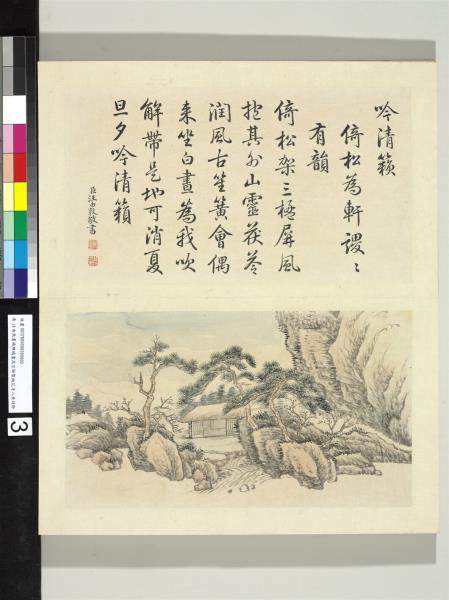 吟清籟
倚松為軒謖〻
有韻
倚松架三楹屏風
抱其外山靈茯苓
潤風古笙簧會偶
来坐白晝為我吹
解帶是地可消夏
旦夕吟清籟
臣汪由敦敬書
3